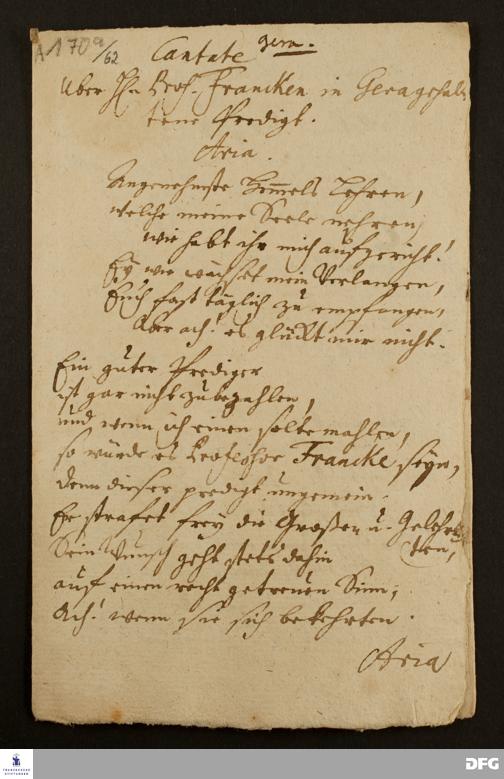 A 170a/62
Cantate Gera.
Uber H. Prof. Francken in Gera gehal
tene Predigt.
Aria.
Angenehmste Himmels Lehren,
welche meine Seele nehren,
wie habt ihr mich aufgericht!
Ey wie wächset mein Verlangen,
Euch fast täglich zu empfangen,
Aber ach! es glückt mir nicht.
Ein guter Prediger
ist gar nicht zubezahlen,
und wenn ich einen solte mahlen,
so würde es Professor Francke seyn,
denn dieser predigt ungemein.
Er strafet frey die Großen u. Gelehr
ten,
Sein Wunsch geht stets dahin
auf einen recht getreuen Sinn,
Ach! wenn sie sich bekehrten.
Aria
FRANCKESCHE
STIFTUNGEN
DFG